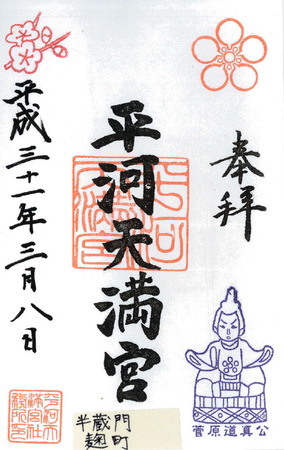 奉拝
平河天満宮
平成三十一年三月八日
菅原道真公
半蔵門
麹町